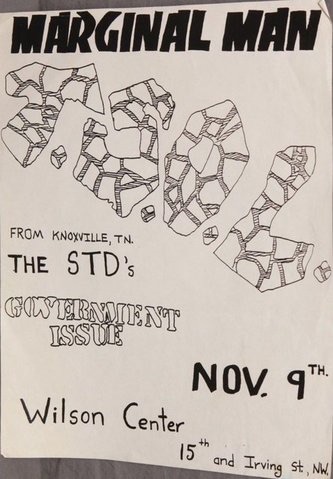 MARGINAL MAN
T.S.O.L.
FROM KNOXVILLE, TN.
THE STD's
GOVERNMENT
ISSUE
NOV. 9TH.
Wilson Center
15th and Irving St, NW.